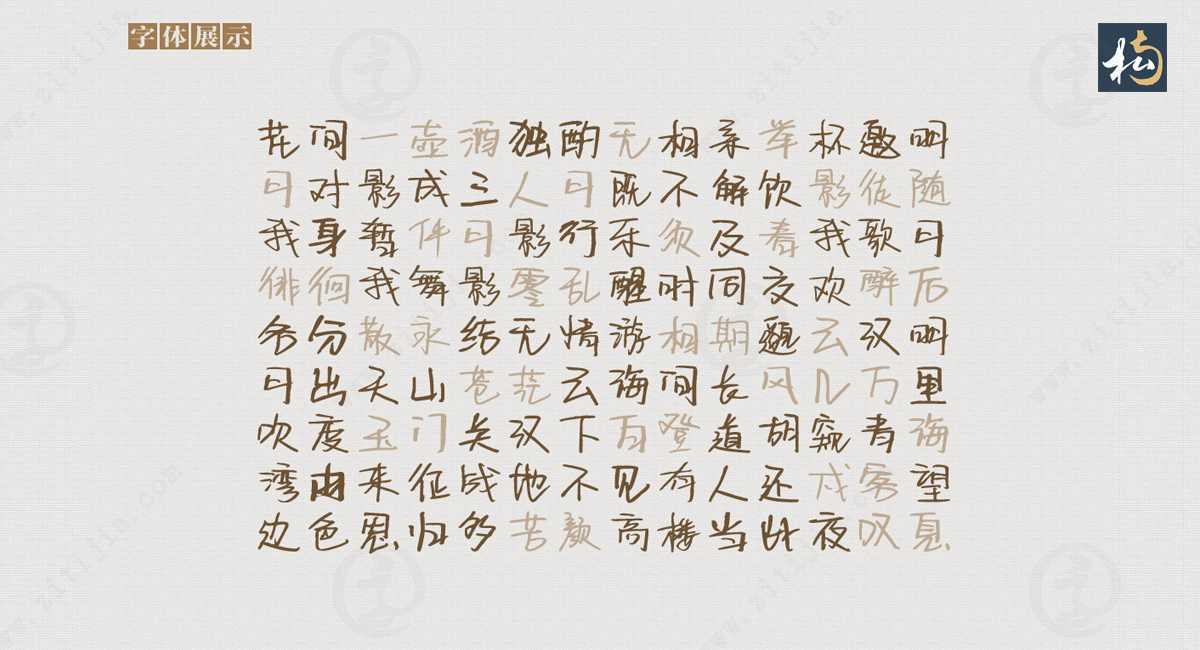 字体展示
花间一壶酒独酌无相亲举杯邀明
月对影成三人月既不解饮影徒随
我身暂伴月影行乐须及春我歌月
徘徊我舞影零乱醒时同交欢醉后
各分散永结无情游相期邈云汉明
月出天山苍茫云海间长风几万里
吹度玉门关汉下白登道胡窥青海
湾由来征战地不见有人还戍客望
边色思归多苦颜高楼当此夜叹息
www.zitijia.com